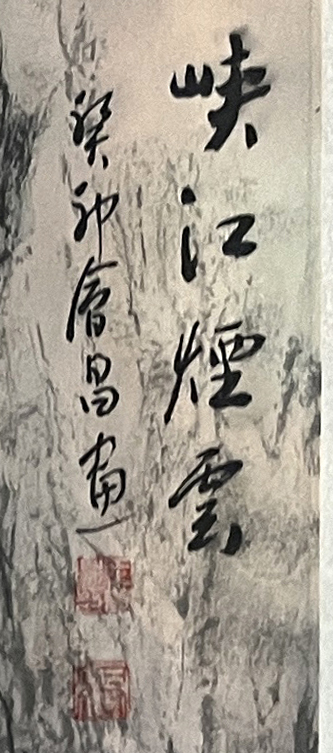 峡江煙雲
癸卯會昌畫